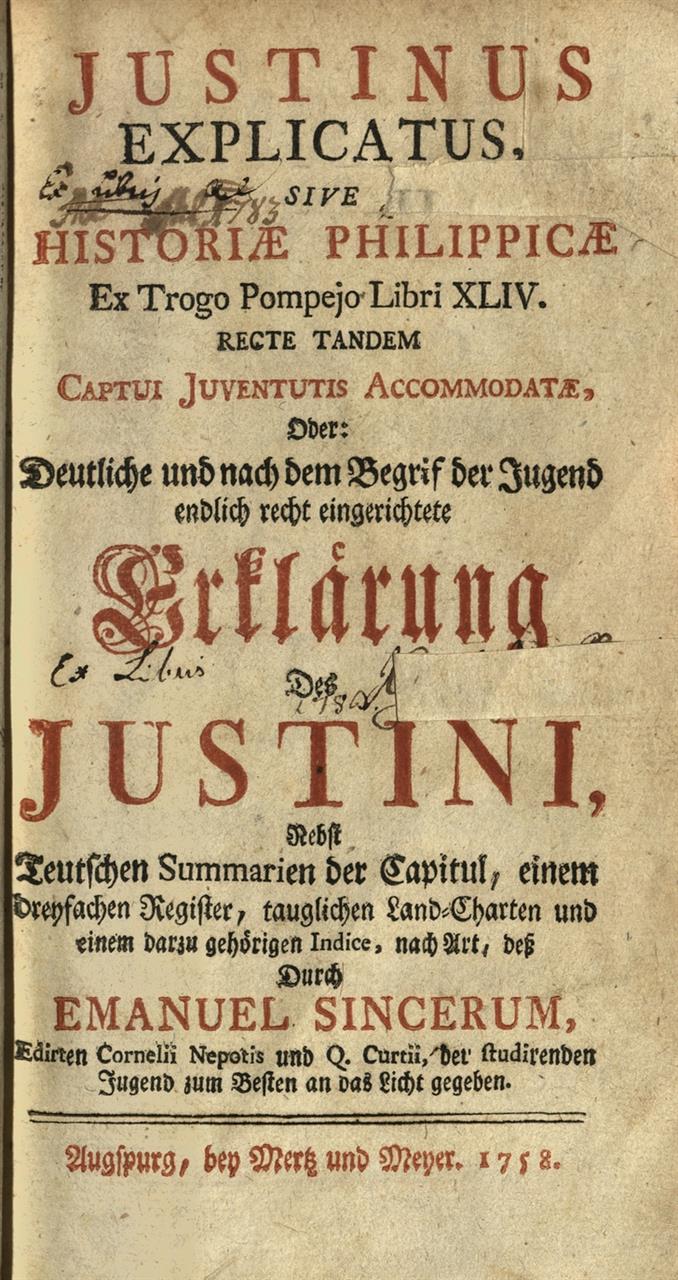 JUSTINUS
EXPLICATUS,
Ex Libris
SIVE
1783
HISTORIÆ PHILIPPICÆ
Ex Trogo Pompejo Libri XLIV.
RECTE TANDEM
CAPTUI JUVENTUTIS ACCOMMODATÆ,
Oder:
Deutliche und nach dem Begrif der Jugend
endlich recht eingerichtete
Erklärung
Ex Libris
Des
JUSTINI,
Nebst
Teutschen Summarien der Capitul, einem
dreyfachen Register, tauglichen Land-Charten und
einem darzu gehörigen Indice, nach Art, deß
Durch
EMANUEL SINCERUM,
Edirten Cornelii Nepotis und Q. Curtii, der studirenden
Jugend zum Besten an das Licht gegeben.
Augspurg, bey Mertz und Meyer. 1758.